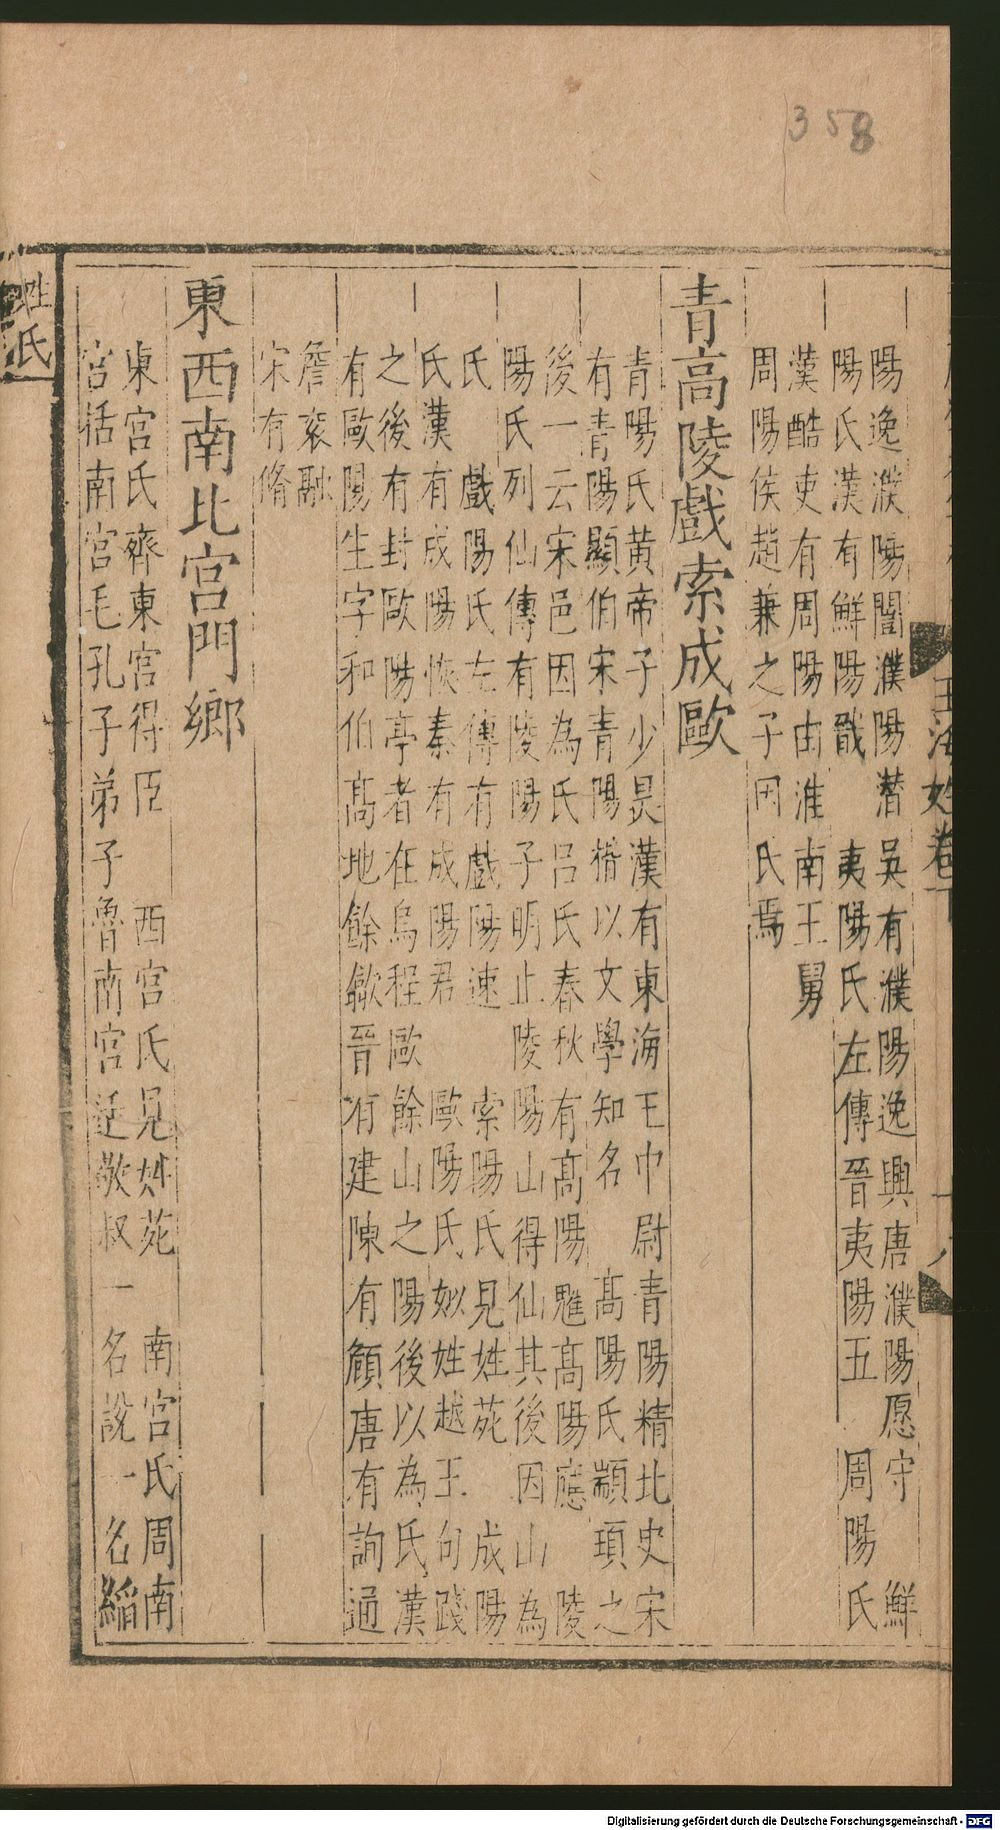 358
陽逸濮陽闓濮陽潛吳有濮陽逸興唐濮陽愿守　鮮
陽氏漢有鮮陽戩　夷陽氏左傳晉夷陽五　周陽氏
漢酷吏有周陽由淮南王舅
周陽侯趙兼之子因氏焉
青高陵戲索成歐
青陽氏黃帝子少昊漢有東海王中尉青陽精北史宋
有青陽顯伯宋青陽楷以文學知名　高陽氏顓頊之
後一云宋邑因為氏呂氏春秋有高陽魋高陽應　陵
陽氏列仙傳有陵陽子明止陵陽山得仙其後因山為
氏　戲陽氏左傳有戲陽速　索陽氏見姓苑　成陽
氏漢有成陽恢秦有成陽君　歐陽氏姒姓越王句踐
之後有封歐陽亭者在烏程歐餘山之陽後以為氏漢
有歐陽生字和伯高地餘歙晉有建陳有頠唐有詢通
詹袞融
宋有脩
東西南北宮門鄉
東宮氏齊東宮得臣　西宮氏見姓苑　南宮氏周南
宮括南宮毛孔子弟子魯南宮适敬叔一名說一名縚
姓氏
玉海姓卷下
Digitalisierung gefördert durch die Deutsche Forschungsgemeinschaft - DFG